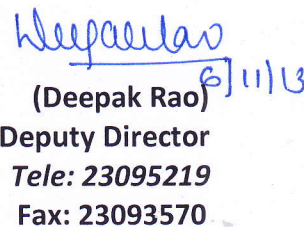 Deepak Rao
6/11/13
(Deepak Rao)
Deputy Director
Tele: 23095219
Fax: 23093570